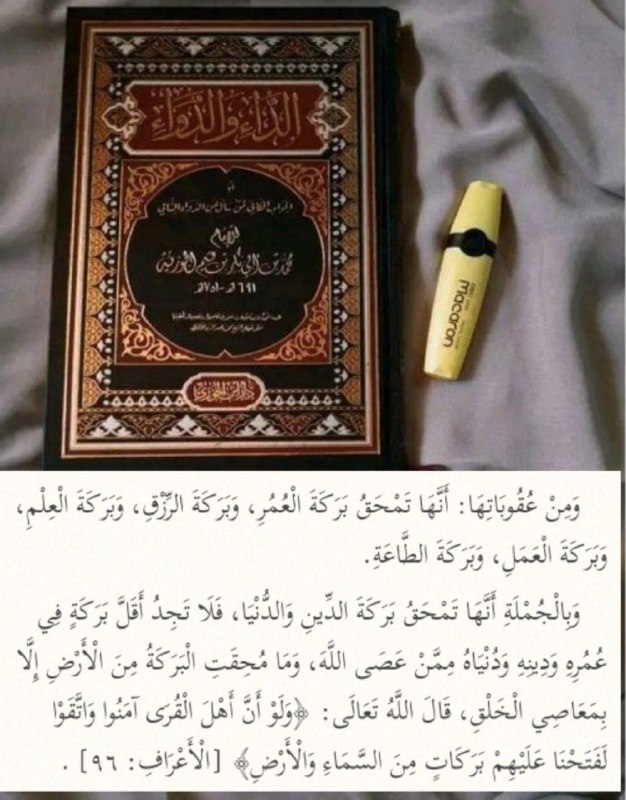 الدَّاءُ والدَّوَاءُ
أو
الجواب الكافي لمن سأل عن الدواء الشافي
للإمام
محمد بن أبي بكر بن قيم الجوزية
٦٩١هـ - ٧٥١هـ
دار ابن الجوزي
macaron
وَمِنْ عُقُوبَاتِهَا: أَنَّهَا تَمْحَقُ بَرَكَةَ الْعُمُرِ، وَبَرَكَةَ الرِّزْقِ، وَبَرَكَةَ الْعِلْمِ،
وَبَرَكَةَ الْعَمَلِ، وَبَرَكَةَ الطَّاعَةِ.
وَبِالْجُمْلَةِ أَنَّهَا تَمْحَقُ بَرَكَةَ الدِّينِ وَالدُّنْيَا، فَلَا تَجِدُ أَقَلَّ بَرَكَةٍ فِي
عُمُرِهِ وَدِينِهِ وَدُنْيَاهُ مِمَّنْ عَصَى اللَّهَ، وَمَا مُحِقَتِ الْبَرَكَةُ مِنَ الْأَرْضِ إِلَّا
بِمَعَاصِي الْخَلْقِ، قَالَ اللَّهُ تَعَالَى: ﴿وَلَوْ أَنَّ أَهْلَ الْقُرَى آمَنُوا وَاتَّقَوْا
لَفَتَحْنَا عَلَيْهِمْ بَرَكَاتٍ مِنَ السَّمَاءِ وَالْأَرْضِ﴾ [الْأَعْرَافِ: ٩٦] .